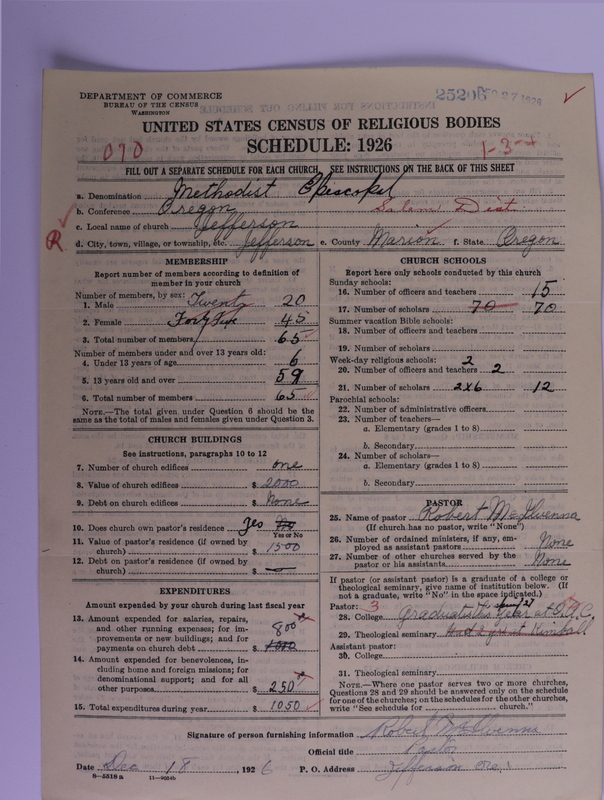 DEPARTMENT OF COMMERCE
BUREAU OF THE CENSUS
WASHINGTON
25206
UNITED STATES CENSUS OF RELIGIOUS BODIES
SCHEDULE: 1926
070
1-3-
FILL OUT A SEPARATE SCHEDULE FOR EACH CHURCH. SEE INSTRUCTIONS ON THE BACK OF THIS SHEET
a. Denomination Methodist Episcopal
b. Conference Oregon Salem Dist
c. Local name of church Jefferson
R
d. City, town, village, or township, etc. Jefferson e. County Marion f. State Oregon
MEMBERSHIP
Report number of members according to definition of
member in your church
Number of members, by sex:
1. Male Twenty 20
2. Female Forty Five 45
3. Total number of members 65
Number of members under and over 13 years old:
4. Under 13 years of age 6
5. 13 years old and over 59
6. Total number of members 65
NOTE.—The total given under Question 6 should be the
same as the total of males and females given under Question 3.
CHURCH BUILDINGS
See instructions, paragraphs 10 to 12
7. Number of church edifices one
8. Value of church edifices $ 2000
9. Debt on church edifices $ None
10. Does church own pastor's residence? Yes No
Yes or No
11. Value of pastor's residence (if owned by
church) $ 1500
12. Debt on pastor's residence (if owned by
church) $ —
EXPENDITURES
Amount expended by your church during last fiscal year
13. Amount expended for salaries, repairs,
and other running expenses; for im-
provements or new buildings; and for
payments on church debt $ 800
14. Amount expended for benevolences, in-
cluding home and foreign missions; for
denominational support; and for all
other purposes $ 250
15. Total expenditures during year $ 1050
CHURCH SCHOOLS
Report here only schools conducted by this church
Sunday schools:
16. Number of officers and teachers 15
17. Number of scholars 70 70
Summer vacation Bible schools:
18. Number of officers and teachers
19. Number of scholars
Week-day religious schools: 2
20. Number of officers and teachers 2
21. Number of scholars 2x6 12
Parochial schools:
22. Number of administrative officers
23. Number of teachers—
a. Elementary (grades 1 to 8)
b. Secondary
24. Number of scholars—
a. Elementary (grades 1 to 8)
b. Secondary
PASTOR
25. Name of pastor Robert McIlvenna
(If church has no pastor, write "None")
26. Number of ordained ministers, if any, em-
ployed as assistant pastors None
27. Number of other churches served by the
pastor or his assistants None
If pastor (or assistant pastor) is a graduate of a college or
theological seminary, give name of institution below. (If
not a graduate, write "No" in the space indicated.)
Pastor: 3
28. College Graduate this year at O.A.C.
29. Theological seminary Kimball
Assistant pastor:
30. College
31. Theological seminary
NOTE.—Where one pastor serves two or more churches,
Questions 28 and 29 should be answered only on the schedule
for one of the churches; on the schedules for the other churches,
write "See schedule for church."
Signature of person furnishing information Robert McIlvenna
Official title Pastor
Date Dec 18, 1926 P. O. Address Jefferson Ore.
8-5518a 11-9024b